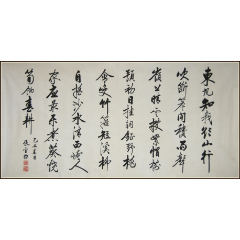 東風知我欲山行
吹斷簷間積雨聲
嶺上晴雲披絮帽樹
頭初日挂銅鉦野桃
含笑竹籬短溪柳
自搖沙水清西崦人
家應最樂煮葵燒
筍餉春耕